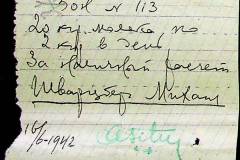 Зон № 113
20 кур молока по
2 кур в день
За наличный расчет
Шварцбер Михаил
16/6-1942